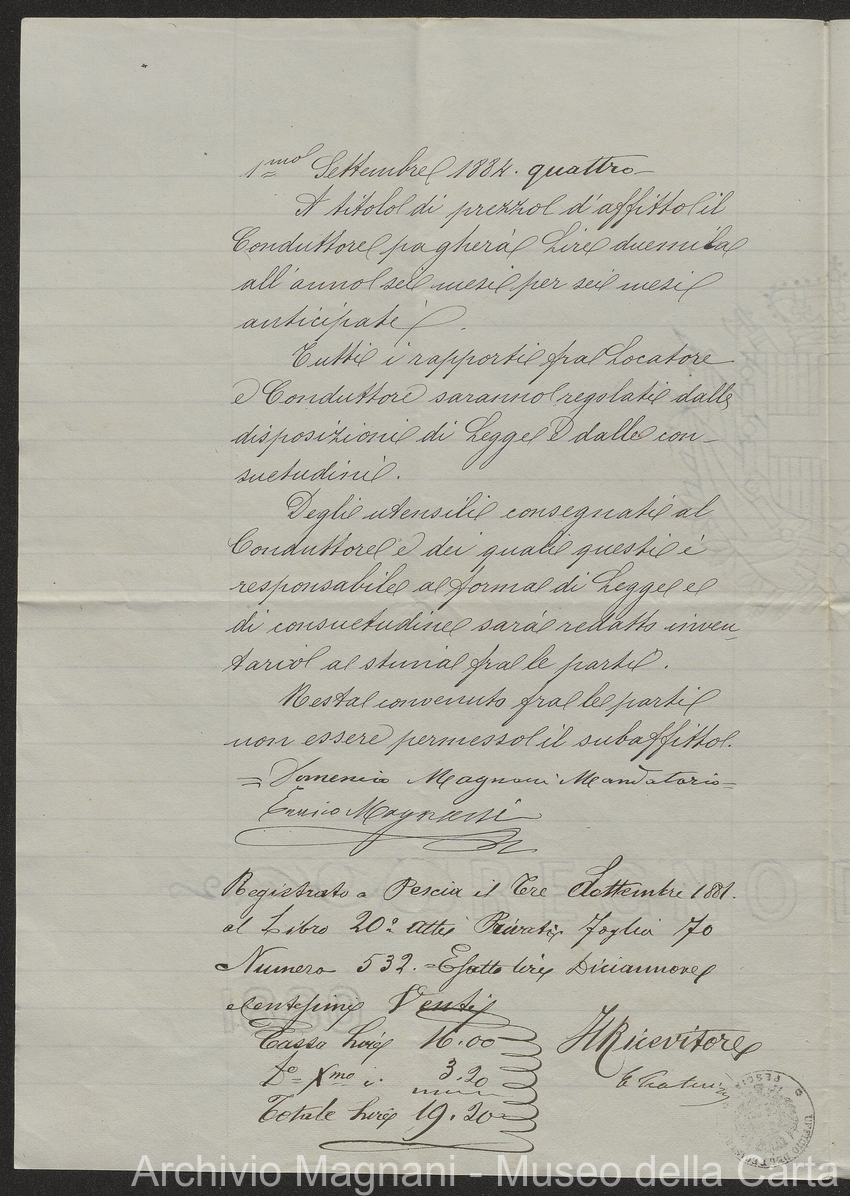 1.mo Settembre 1884. quattro
A titolo di prezzo d'affitto il
Conduttore pagherà Lire duemila
all'anno sei mesi per sei mesi
anticipate.
Tutti i rapporti fra Locatore
e Conduttore saranno regolati dalle
disposizioni di Legge e dalle con-
suetudini.
Degli utensili consegnati al
Conduttore e dei quali questi è
responsabile a forma di Legge e
di consuetudine sarà redatto inven-
tario a stima fra le parti.
Resta convenuto fra le parti
non essere permesso il subaffitto.
= Domenico Magnani Mandatario =
Enrico Magnani
Registrato a Pescia il Tre Settembre 1881.
al Libro 20° Atti Privati Foglio 70
Numero 532. Esatto lire Diciannove
e centesimi Venti
Tassa Lire 16.00
Do Xmo i. 3.20
Totale Lire 19.20
Il Ricevitore
PESCIA
Archivio Magnani - Museo della Carta